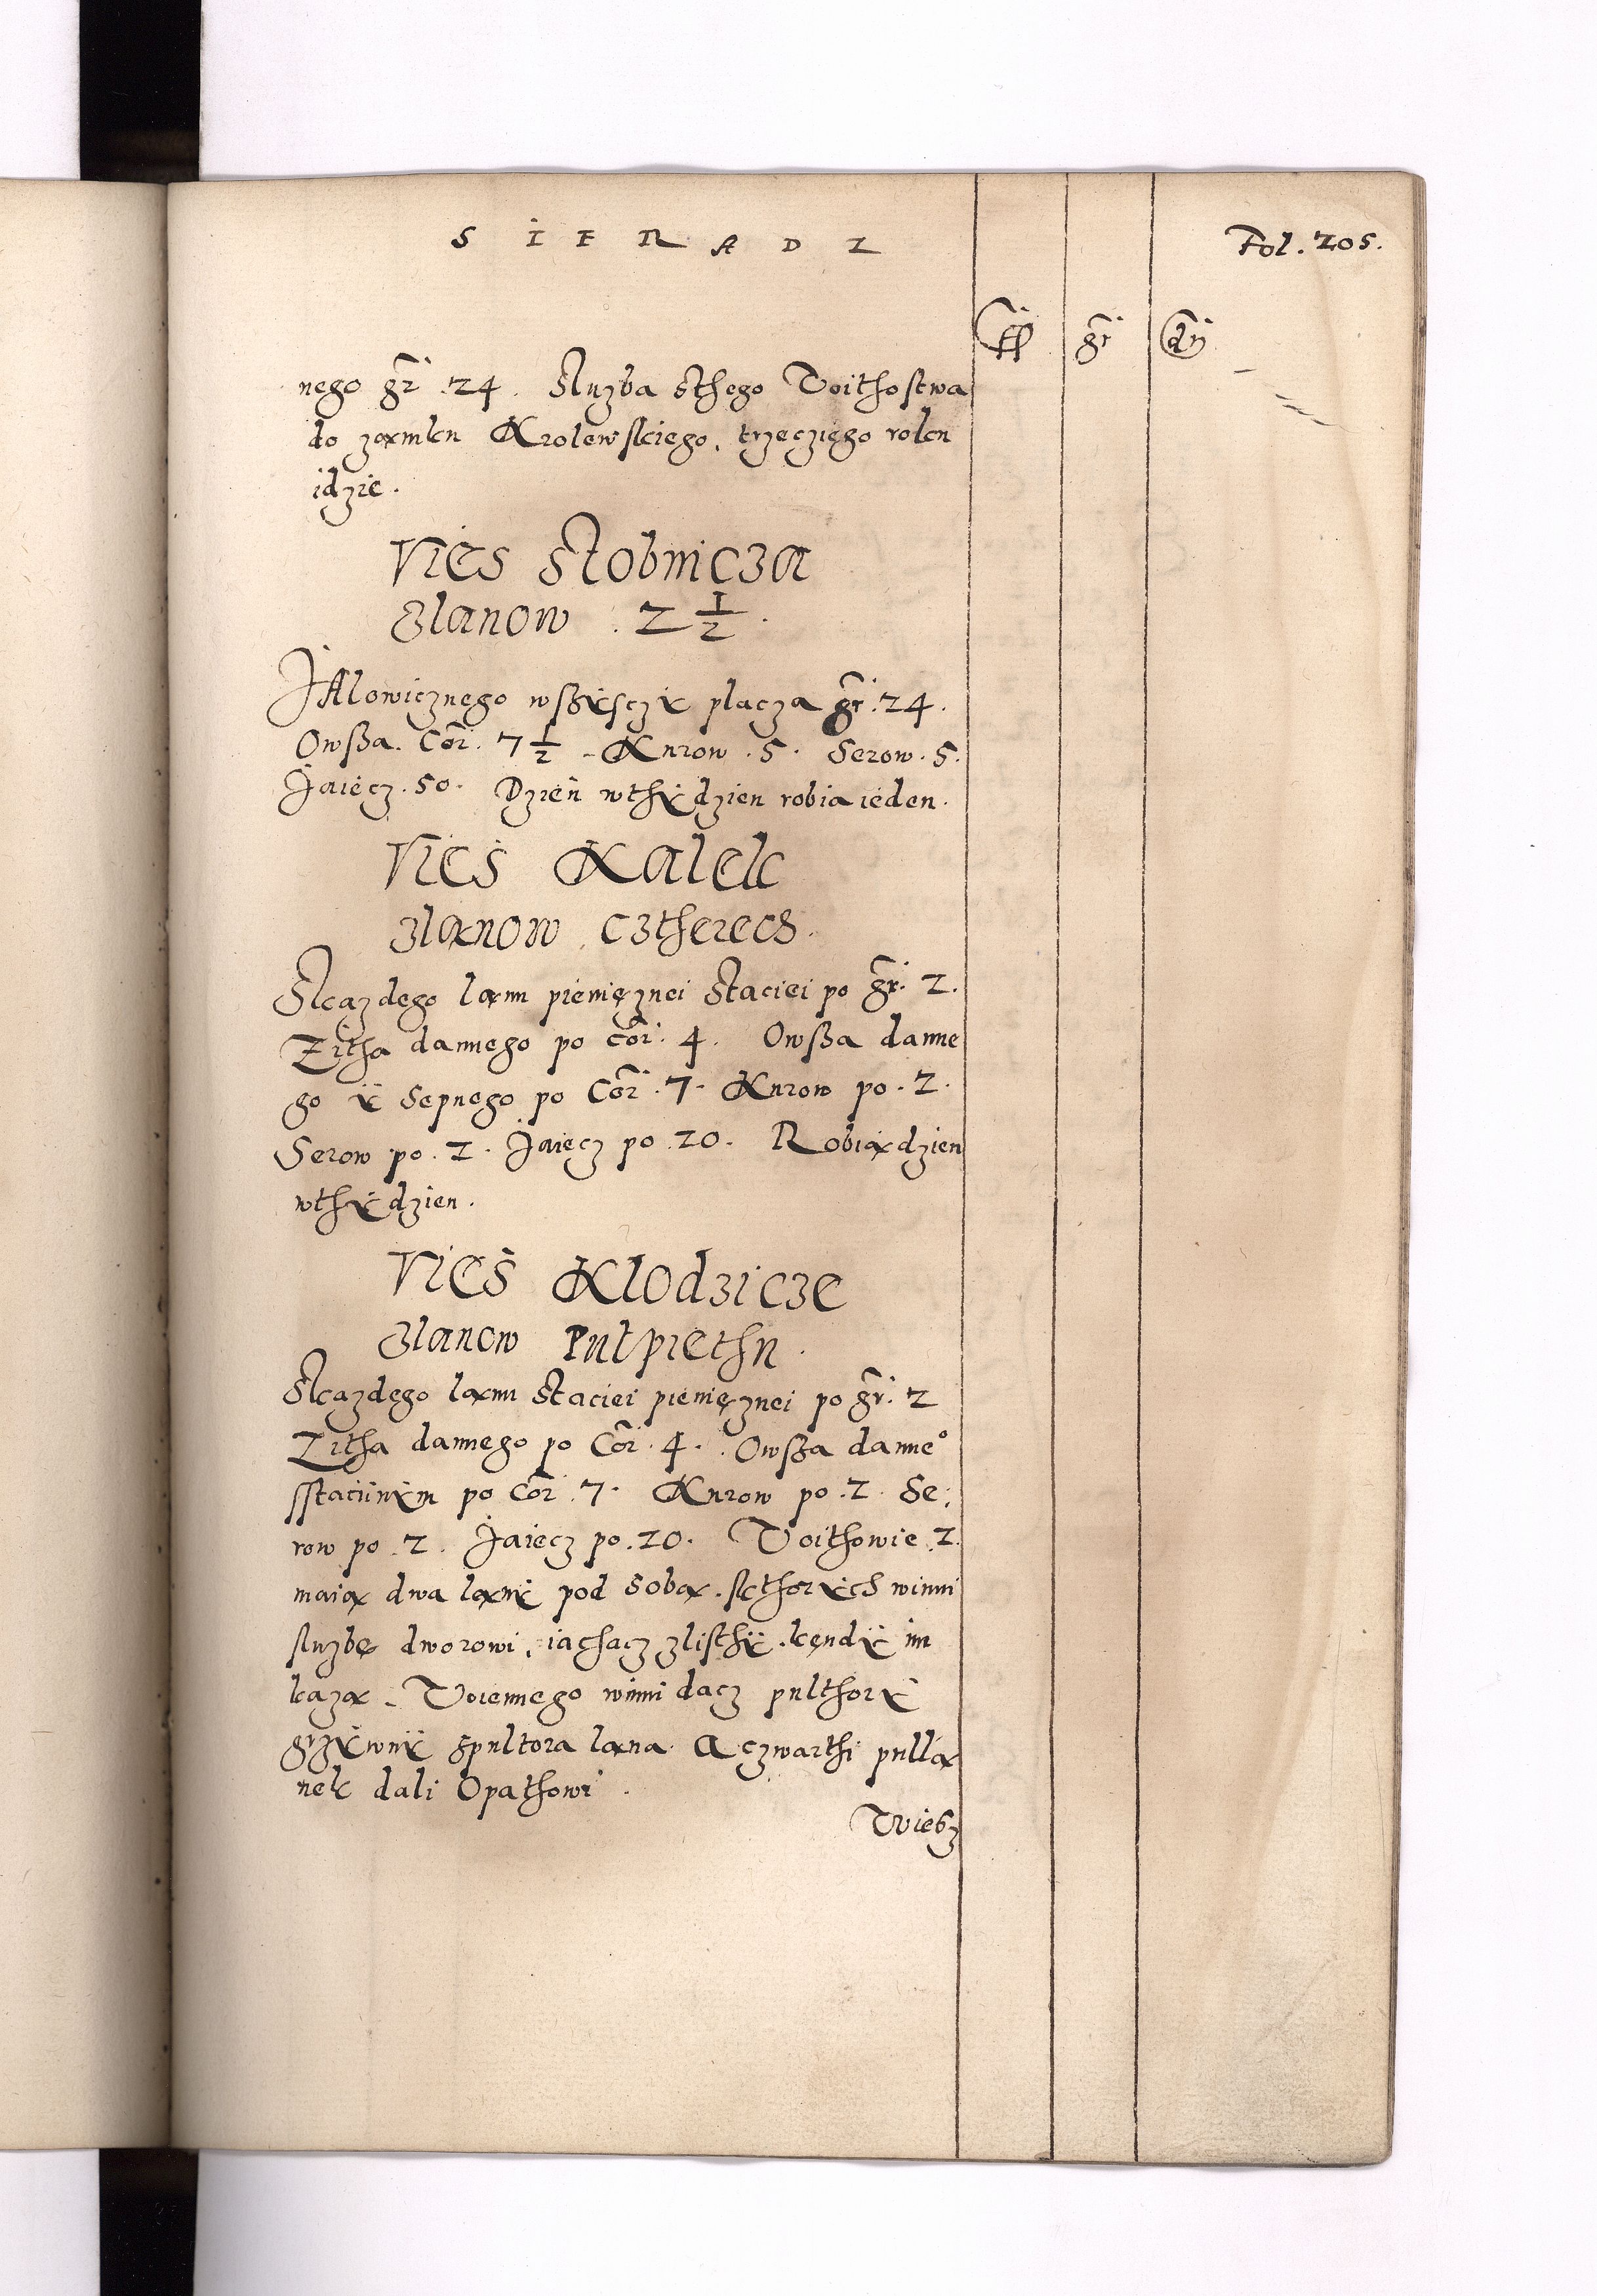 SIERADZ
Fol. 205.
ff gr dn
nego gr 24. Sluzba sthego Woithostwa
do zamku Krolewskiego, trzecziego roku
idzie.
Vies Stobnicza
zlanow . 2 1/2 .
Jalowicznego wssÿsczÿ placza gr. 24.
Owssa. Cor. 7 1/2 - Kurow . 5. Serow . 5.
Jaiecz . 50. Dzień wthÿdzien robia ieden.
Vies Kalek
zlanow cztherech.
Skazdego lanu pieniężnei Staciei po gr. 2.
Zitha dannego po cor. 4. Owssa danne
go ÿ Sepnego po Cor. 7. Kurow po. 2.
Serow po. 2. Jaiecz po 20. Robią dzien
wthÿdzien.
Vies Klodzicze
zlanow Pulpiethu.
Skazdego lanu Staciei pieniężnei po gr. 2
Zitha dannego po Cor. 4. Owssa danne°
sstaciinÿm po Cor. 7. Kurow po. 2. Se:
row po. 2. Jaiecz po. 20. Woithowie 2.
maią dwa lanÿ pod sobą. skthorÿch winni
sluzbę dworowi, iachacz zlisthÿ. kędÿ im
każą. Woiennego winni dacz pulthorÿ
grzÿwnÿ spultora lana. A czwarthi pullą
nek dali Opathowi.
Wiesz